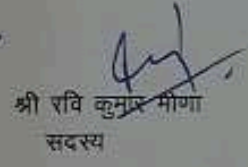 श्री रवि कुमार मीणा
सदस्य